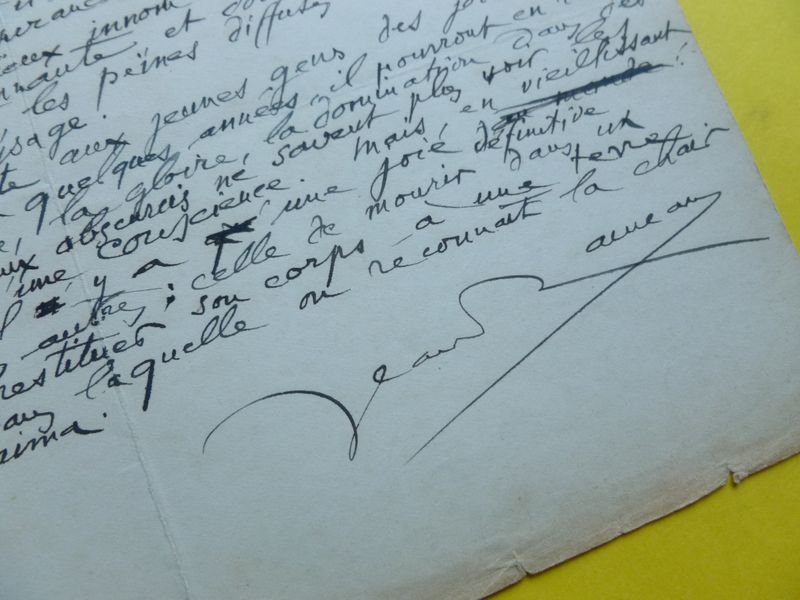 eux innom
nnante et
les peines diffuses
sage.
te aux jeunes gens des
quelques années, il pourront en
la gloire, la domination dans des
ux obscurcis ne savent plus voir
une conscience. Mais, en vieillissant
il y a une joie définitive
autres ; celle de mourir dans un
restituer son corps à une terre
laquelle on reconnait la chair
Jean